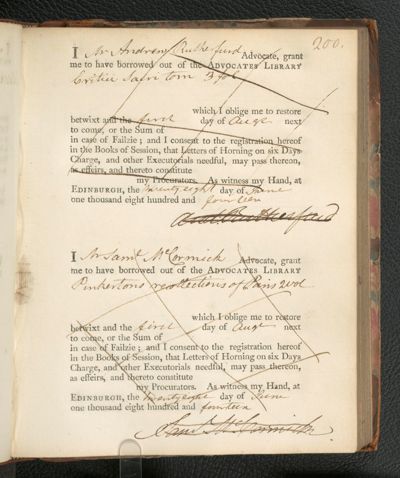 200.
I Mr Andrew Rutherfurd Advocate, grant
me to have borrowed out of the ADVOCATES LIBRARY
Critici Sacri tom 3 fol
which I oblige me to restore
betwixt and the first day of Augt next
to come, or the Sum of
in case of Failzie; and I consent to the registration hereof
in the Books of Session, that Letters of Horning on six Days
Charge, and other Executorials needful, may pass thereon,
as effeirs, and thereto constitute
my Procurators. As witness my Hand, at
EDINBURGH, the twenty eight day of June
one thousand eight hundred and fourteen
And. Rutherfurd
I Mr Saml McCormick Advocate, grant
me to have borrowed out of the ADVOCATES LIBRARY
Pinkertons recollections of Paris 2 vol
which I oblige me to restore
betwixt and the first day of Augt next
to come, or the Sum of
in case of Failzie; and I consent to the registration hereof
in the Books of Session, that Letters of Horning on six Days
Charge, and other Executorials needful, may pass thereon,
as effeirs, and thereto constitute
my Procurators. As witness my Hand, at
EDINBURGH, the twenty eight day of June
one thousand eight hundred and fourteen
Saml McCormick